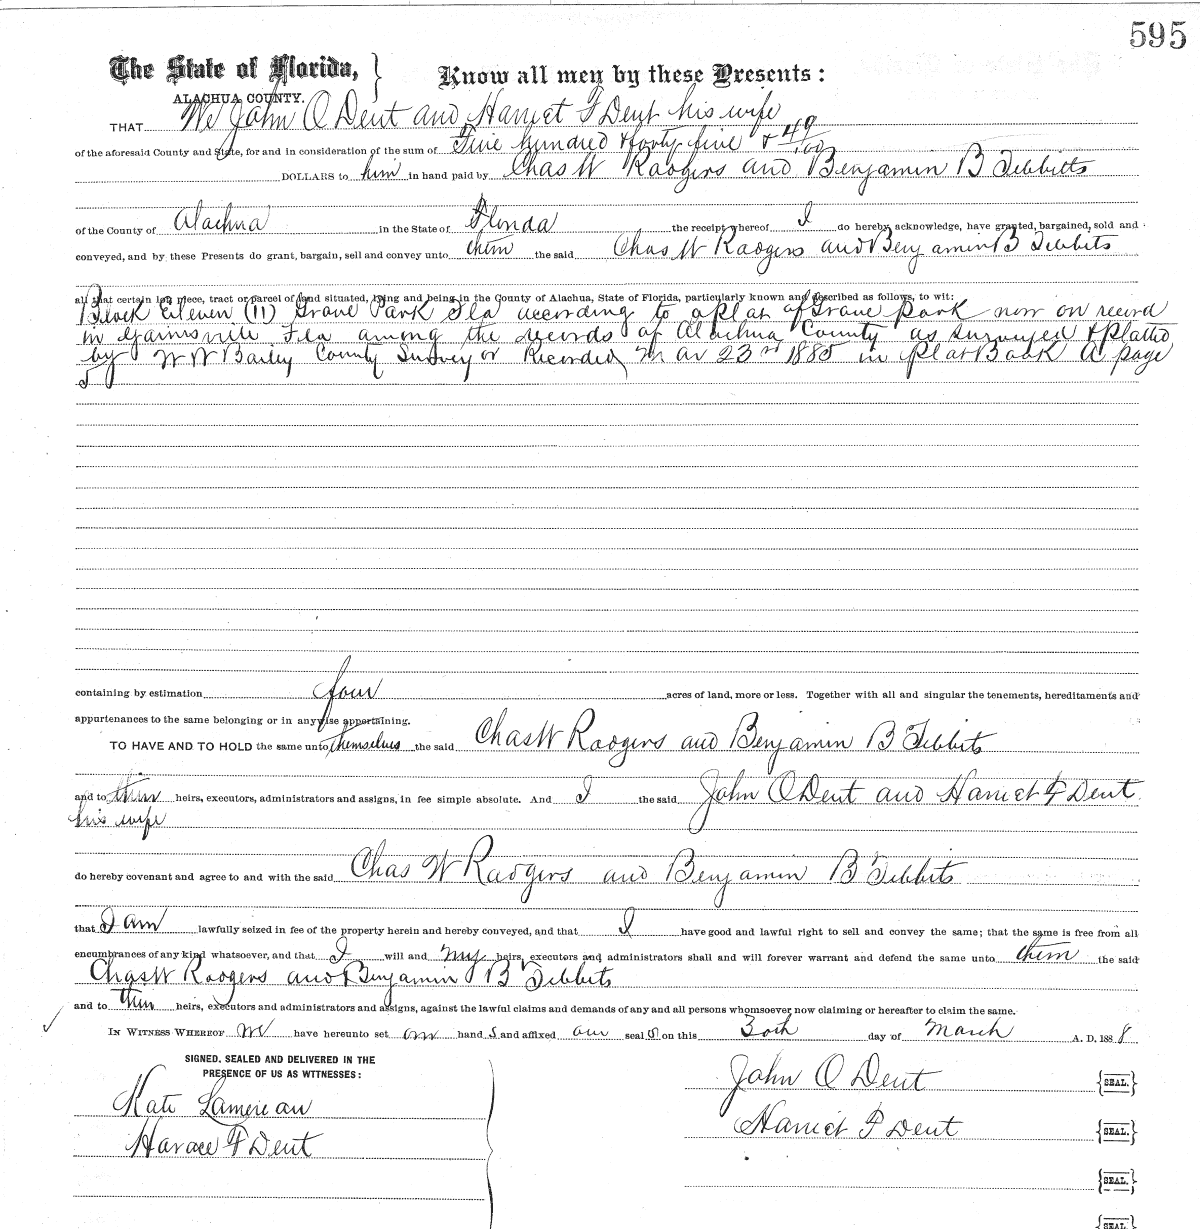 595
The State of Florida, } Know all men by these Presents:
ALACHUA COUNTY.
THAT We John O Dent and Harriet F Dent his wife
of the aforesaid County and State, for and in consideration of the sum of Five hundred & forty five & 49/100
DOLLARS to him in hand paid by Chas W Rodgers and Benjamin B Tibbitts
of the County of Alachua in the State of Florida the receipt whereof I do hereby acknowledge, have granted, bargained, sold and
conveyed, and by these Presents do grant, bargain, sell and convey unto them the said Chas W Rodgers and Benjamin B Tibbits
all that certain lot, piece, tract or parcel of land situated, lying and being in the County of Alachua, State of Florida, particularly known and described as follows, to wit:
Block Eleven (11) Grove Park Fla according to a plat of Grove Park now on record
in Gainsville Fla among the records of Alachua County as surveyed & platted
by W W Bailey County Surveyor Recorded Mar 23rd 1885 in plat Book A page
5
containing by estimation four acres of land, more or less. Together with all and singular the tenements, hereditaments and
appurtenances to the same belonging or in anywise appertaining.
TO HAVE AND TO HOLD the same unto themselves the said Chas W Rodgers and Benjamin B Tibbits
and to their heirs, executors, administrators and assigns, in fee simple absolute. And I the said John O Dent and Harriet F Dent
his wife
do hereby covenant and agree to and with the said Chas W Rodgers and Benjamin B Tibbits
that I am lawfully seized in fee of the property herein and hereby conveyed, and that I have good and lawful right to sell and convey the same; that the same is free from all
encumbrances of any kind whatsoever, and that I will and my heirs, executors and administrators shall and will forever warrant and defend the same unto them the said
Chas W Rodgers and Benjamin B Tibbits
and to their heirs, executors and administrators and assigns, against the lawful claims and demands of any and all persons whomsoever now claiming or hereafter to claim the same.
IN WITNESS WHEREOF we have hereunto set our hand s and affixed our seal s on this 30th day of March A. D. 1888
SIGNED, SEALED AND DELIVERED IN THE
PRESENCE OF US AS WITNESSES:
John O Dent {SEAL.}
Kate
Harriet F Dent {SEAL.}
Horace F Dent
{SEAL.}
{SEAL.}